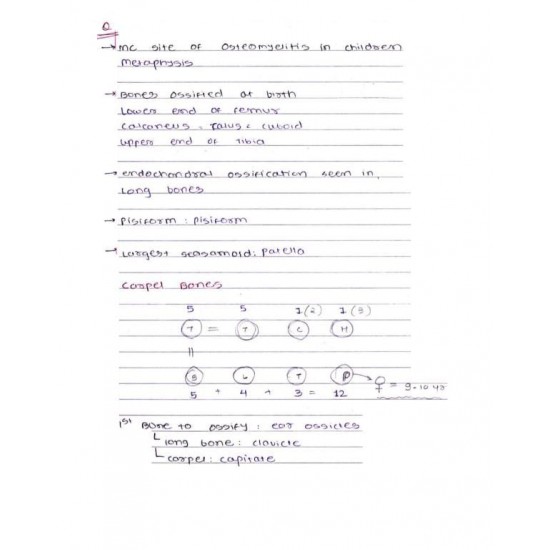 Q
→ mc site of Osteomyelitis in children
metaphysis
→ Bones ossified at birth
Lower end of femur
calcaneus, Talus, cuboid
upper end of Tibia
→ endochondral ossification seen in,
Long bones
→ Pisiform : Pisiform
→ Largest seasamoid: Patella
Carpel Bones
5 5 1(2) 1(3)
T = T C H
||
S L T P → ♀ = 9-10 yr
5 + 4 + 3 = 12
1st Bone to ossify : ear ossicles
└ long bone : clavicle
└ carpel : capitate